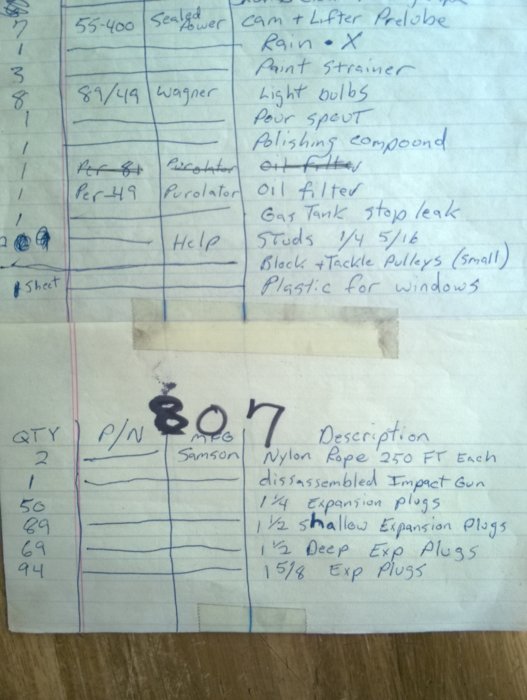 7 55-400 Sealed Power Cam + Lifter Prelube
1 Rain • X
3 Paint strainer
8 89/49 Wagner Light bulbs
1 Pour spout
1 Polishing compound
1 Per-81 Purolator Oil filter
1 Per-49 Purolator Oil filter
1 Gas Tank stop leak
Help Studs 1/4 5/16
Block + Tackle Pulleys (small)
1 sheet Plastic for windows
807
QTY P/N MFG Description
2 Samson Nylon Rope 250 FT Each
1 dissassembled Impact Gun
50 1 1/4 Expansion plugs
89 1 1/2 shallow Expansion Plugs
69 1 1/2 Deep Exp Plugs
94 1 5/8 Exp Plugs